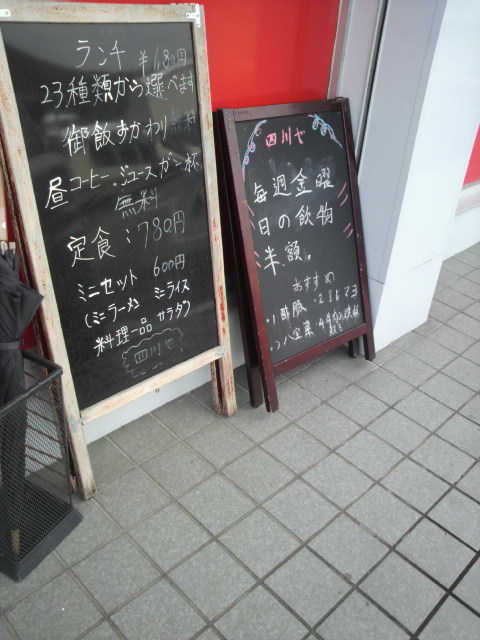 ランチ ¥680円
23種類から選べます
御飯おかわり無料
昼コーヒー、ジュースが一杯
無料
定食：780円
ミニセット 600円
(ミニラーメン ミニライス
料理一品 サラダ)
四川や
四川や
毎週金曜
日の飲物
半額。
おすすめ
酢豚
八宝菜